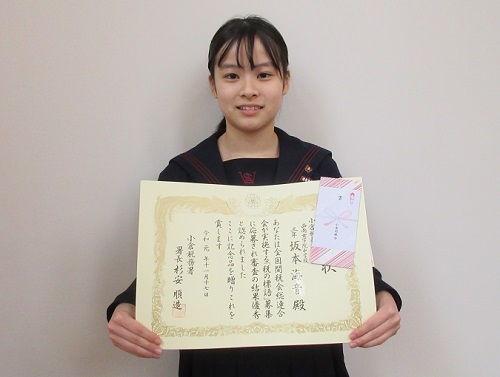 状
坂本
殿
あなたは全国間税会総連合
会が実施する「税の標語」募集
に応募され審査の結果優秀
と認められました
ここに記念品を贈りこれを
賞します
令和元年十一月十七日
小倉税務署
署長 杉安 順造